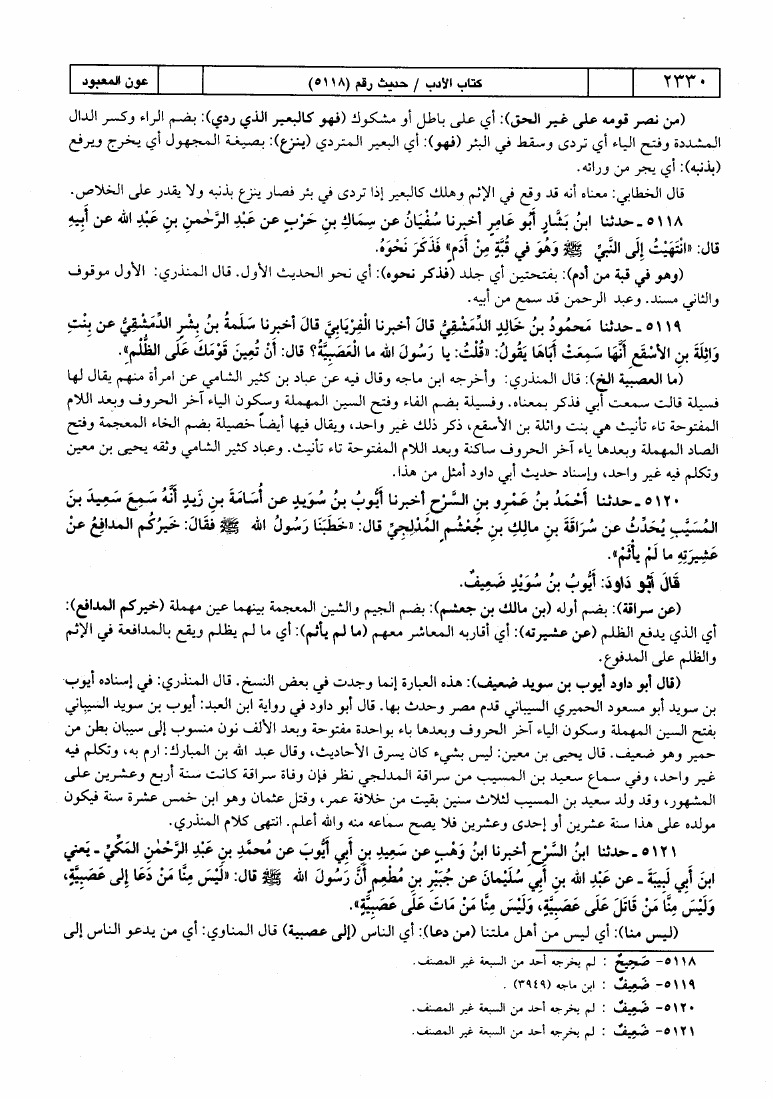 ٢٣٣٠ كتاب الأدب / حديث رقم (٥١١٨) عون المعبود
(من نصر قومه على غير الحق): أي على باطل أو مشكوك (فهو كالبعير الذي ردي): بضم الراء وكسر الدال
المشددة وفتح الياء أي تردى وسقط في البئر (فهو): أي البعير المتردي (ينزع): بصيغة المجهول أي يخرج ويرفع
(بذنبه): أي يجر من ورائه.
قال الخطابي: معناه أنه قد وقع في الإثم وهلك كالبعير إذا تردى في بئر فصار ينزع بذنبه ولا يقدر على الخلاص.
٥١١٨ـ حدثنا ابنُ بَشَّارٍ أَبُو عَامِرٍ أخبرنا سُفْيَانُ عن سِمَاكِ بنِ حَرْبٍ عن عَبْدِ الرَّحْمٰنِ بنِ عَبْدِ الله عن أَبِيهِ
قال: «انْتَهَيْتُ إِلَى النَّبيِّ ﷺ وَهُوَ في قُبَّةٍ مِنْ أَدَمٍ» فَذَكَرَ نَحْوَهُ.
(وهو في قبة من أدم): بفتحتين أي جلد (فذكر نحوه): أي نحو الحديث الأول. قال المنذري: الأول موقوف
والثاني مسند. وعبد الرحمن قد سمع من أبيه.
٥١١٩ـ حدثنا مَحمُودُ بنُ خَالِدٍ الدِّمَشْقِيُّ قالَ أخبرنا الْفِرْيَابِيُّ قالَ أخبرنا سَلَمةُ بنُ بِشْرٍ الدِّمَشْقِيُّ عن بِنْتِ
وَاثِلَةَ بنِ الأسْقَعِ أَنَّهَا سَمِعَتْ أَبَاهَا يَقُولُ: «قُلْتُ: يا رَسُولَ الله ما الْعَصَبِيَّةُ؟ قال: أَنْ تُعِينَ قَوْمَكَ عَلَى الظُّلْمِ».
(ما العصبية الخ): قال المنذري: وأخرجه ابن ماجه وقال فيه عن عباد بن كثير الشامي عن امرأة منهم يقال لها
فسيلة قالت سمعت أبي فذكر بمعناه. وفسيلة بضم الفاء وفتح السين المهملة وسكون الياء آخر الحروف وبعد اللام
المفتوحة تاء تأنيث هي بنت واثلة بن الأسقع، ذكر ذلك غير واحد، ويقال فيها أيضاً خصيلة بضم الخاء المعجمة وفتح
الصاد المهملة وبعدها ياء آخر الحروف ساكنة وبعد اللام المفتوحة تاء تأنيث. وعباد كثير الشامي وثقه يحيى بن معين
وتكلم فيه غير واحد، وإسناد حديث أبي داود أمثل من هذا.
٥١٢٠ـ حدثنا أَحْمَدُ بنُ عَمْرِو بنِ السَّرْحِ أخبرنا أَيُّوبُ بنُ سُوَيْدٍ عن أُسَامَةَ بنِ زَيدٍ أَنَّهُ سَمِعَ سَعِيدَ بنَ
المُسَيَّبِ يُحَدِّثُ عن سُرَاقَةَ بنِ مالِكِ بنِ جُعْشُمٍ المُدْلِجِيِّ قال: «خَطَبَنَا رَسُولُ الله ﷺ فقَالَ: خَيْرُكُم المدَافِعُ عنْ
عَشِيرَتِهِ ما لَمْ يأْثَمْ».
قَالَ أبُو دَاودَ: أَيُّوبُ بنُ سُوَيْدٍ ضَعِيفٌ.
(عن سراقة): بضم أوله (بن مالك بن جعشم): بضم الجيم والشين المعجمة بينهما عين مهملة (خيركم المدافع):
أي الذي يدفع الظلم (عن عشيرته): أي أقاربه المعاشر معهم (ما لم يأثم): أي ما لم يظلم ويقع بالمدافعة في الإثم
والظلم على المدفوع.
(قال أبو داود أيوب بن سويد ضعيف): هذه العبارة إنما وجدت في بعض النسخ. قال المنذري: في إسناده أيوب
بن سويد أبو مسعود الحميري السيباني قدم مصر وحدث بها. قال أبو داود في رواية ابن العبد: أيوب بن سويد السيباني
بفتح السين المهملة وسكون الياء آخر الحروف وبعدها باء بواحدة مفتوحة وبعد الألف نون منسوب إلى سيبان بطن من
حمير وهو ضعيف. قال يحيى بن معين: ليس بشيء كان يسرق الأحاديث، وقال عبد الله بن المبارك: ارم به، وتكلم فيه
غير واحد، وفي سماع سعيد بن المسيب من سراقة المدلجي نظر فإن وفاة سراقة كانت سنة أربع وعشرين على
المشهور، وقد ولد سعيد بن المسيب لثلاث سنين بقيت من خلافة عمر، وقتل عثمان وهو ابن خمس عشرة سنة فيكون
مولده على هذا سنة عشرين أو إحدى وعشرين فلا يصح سماعه منه والله أعلم. انتهى كلام المنذري.
٥١٢١ـ حدثنا ابنُ السَّرْحِ أخبرنا ابنُ وَهْبٍ عن سَعِيدِ بنِ أَبي أَيُّوبَ عن مُحمَّدِ بنِ عَبْدِ الرَّحْمٰنِ المَكِّيِّ ـ يَعني
ابنَ أَبي لَبِيبَةَ ـ عن عَبْدِ الله بنِ أَبي سُلَيْمَانَ عن جُبَيْرِ بنِ مُطْعِمٍ أَنَّ رَسُولَ الله ﷺ قال: «لَيْسَ مِنَّا مَنْ دَعَا إلى عَصَبِيَّةٍ،
وَلَيْسَ مِنَّا مَنْ قَاتَلَ عَلَى عَصَبِيَّةٍ، وَلَيْسَ مِنَّا مَنْ مَاتَ عَلَى عَصَبِيَّةٍ».
(ليس منا): أي ليس من أهل ملتنا (من دعا): أي الناس (إلى عصبية) قال المناوي: أي من يدعو الناس إلى
٥١١٨- صَحِيحٌ : لم يخرجه أحد من السبعة غير المصنف.
٥١١٩- ضَعِيفٌ : ابن ماجه (٣٩٤٩) .
٥١٢٠- ضَعِيفٌ : لم يخرجه أحد من السبعة غير المصنف.
٥١٢١- ضَعِيفٌ : لم يخرجه أحد من السبعة غير المصنف.